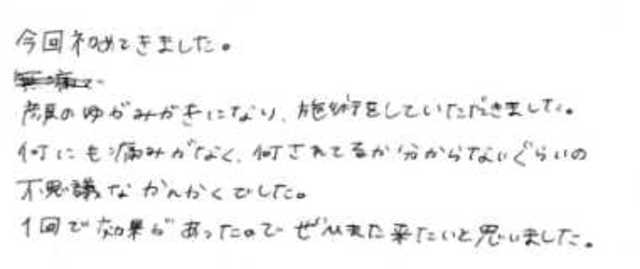 今回初めてきました。
無痛で
顔のゆがみがきになり、施術をしていただきました。
何にも痛みがなく、何されてるか分からないぐらいの
不思議なかんかくでした。
1回で効果があったので ぜひまた来たいと思いました。